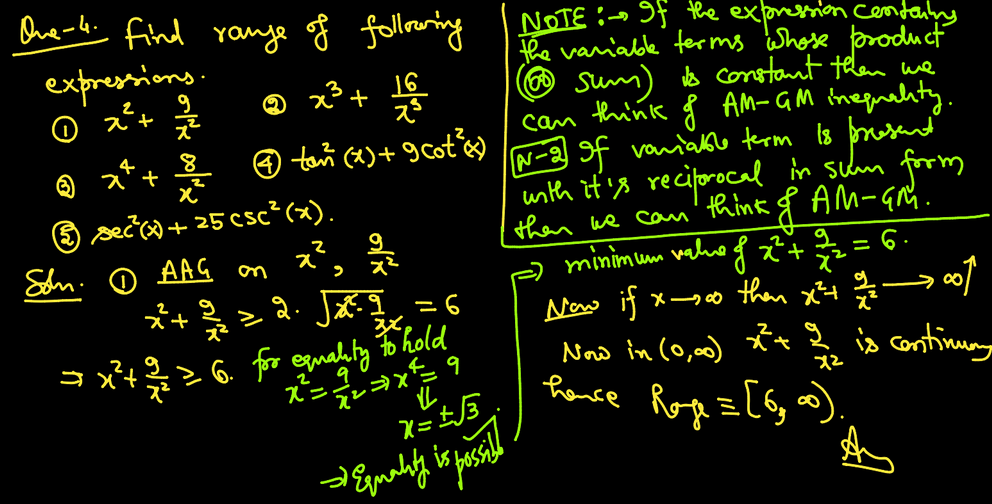 Que-4. Find range of following
expressions.
① x² + 9/x² ② x³ + 16/x³
③ x⁴ + 8/x² ④ tan²(x) + 9cot²(x)
⑤ sec²(x) + 25 csc²(x).
Soln. ① AAG on x², 9/x²
x² + 9/x² ≥ 2·√(x²·9/x²) = 6
⇒ x² + 9/x² ≥ 6.
for equality to hold
x² = 9/x² ⇒ x⁴ = 9
⇓
x = ±√3.
⇒ Equality is possible
NOTE :→ If the expression contains
the variable terms whose product
(or sum) is constant then we
can think of AM-GM inequality.
N-2 If variable term is present
with it's reciprocal in sum form
then we can think of AM-GM.
⇒ minimum value of x² + 9/x² = 6.
Now if x → ∞ then x² + 9/x² → ∞
Now in (0,∞) x² + 9/x² is continuous
hence Range ≡ [6, ∞).
Ans